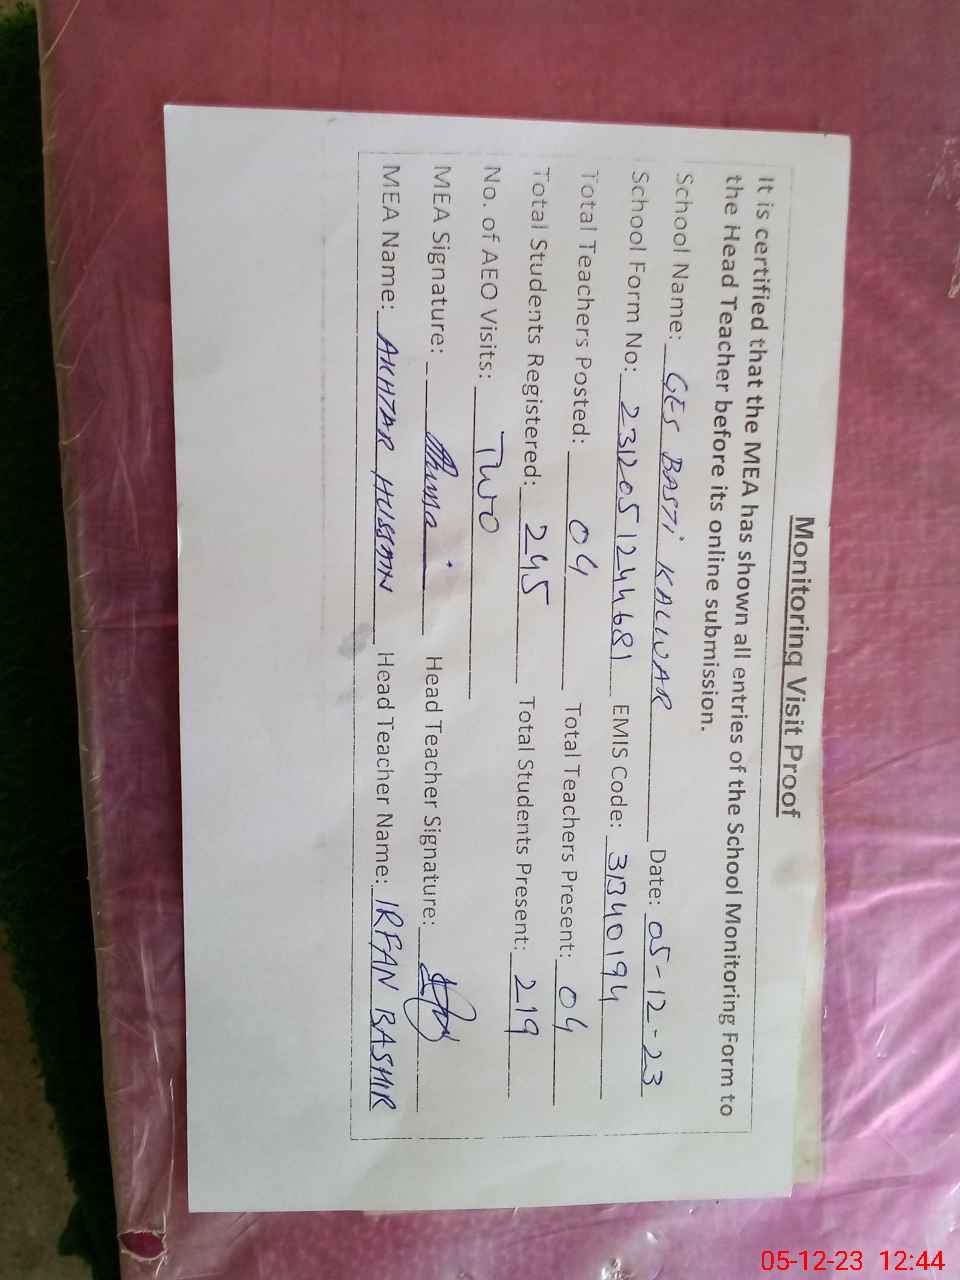 Monitoring Visit Proof
It is certified that the MEA has shown all entries of the School Monitoring Form to
the Head Teacher before its online submission.
School Name: GES BASTI KALWAR Date: 05-12-23
School Form No: 2312051244681 EMIS Code: 31340194
Total Teachers Posted: 04 Total Teachers Present: 04
Total Students Registered: 245 Total Students Present: 219
No. of AEO Visits: Two
MEA Signature: Head Teacher Signature:
MEA Name: AKHTAR HUSSAIN Head Teacher Name: IRFAN BASHIR
05-12-23 12:44